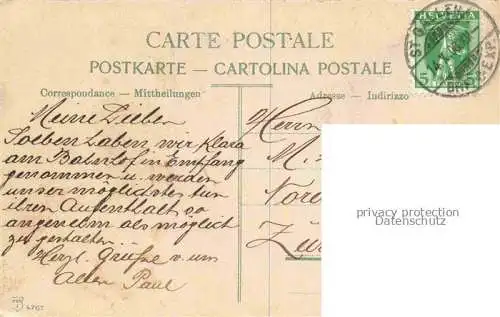 CARTE POSTALE
POSTKARTE – CARTOLINA POSTALE
Correspondance – Mittheilungen
Adresse – Indirizzo
HELVETIA
5
ST. GALLEN
Meine Lieben
Soeben haben wir Klara
am Bahnhof in Empfang
genommen u. werden
unser möglichstes tun
ihren Aufenthalt so
angenehm als möglich
zu gestalten.
Herzl. Grüsse v. uns
Allen Paul
Herrn
M.
privacy protection
Datenschutz